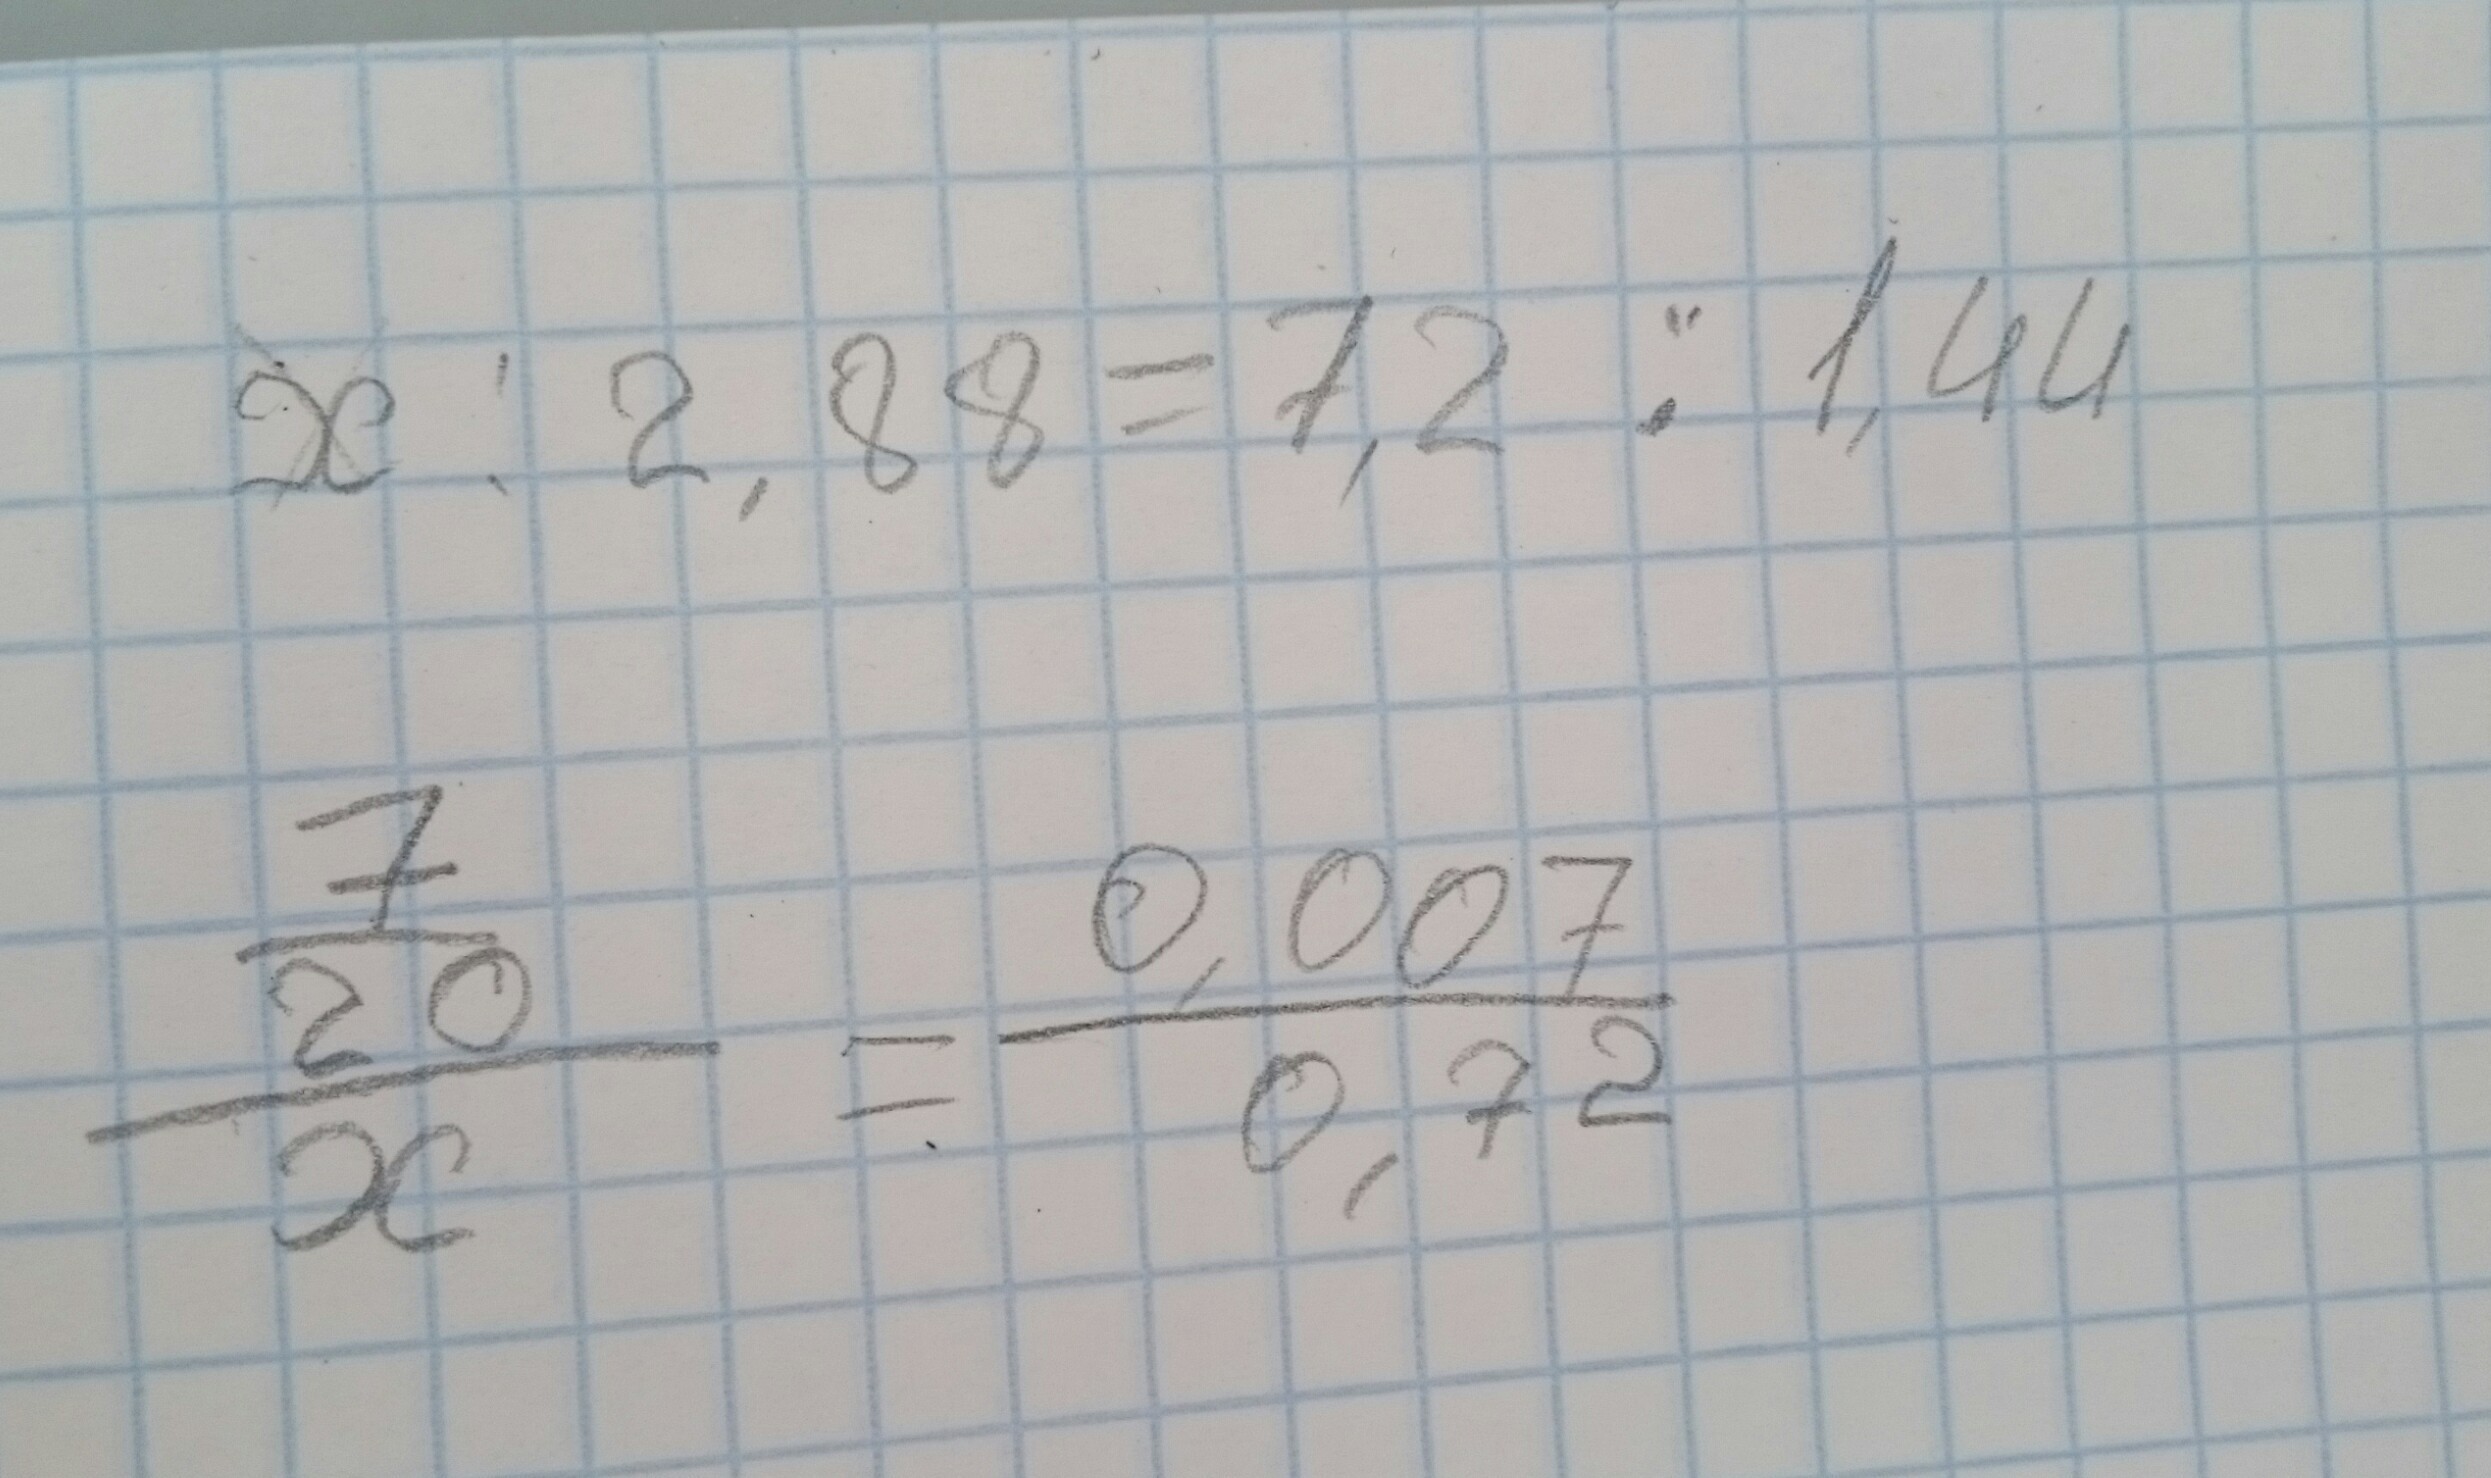 x : 2,88 = 7,2 : 1,44
7
20
x
=
0,007
0,72